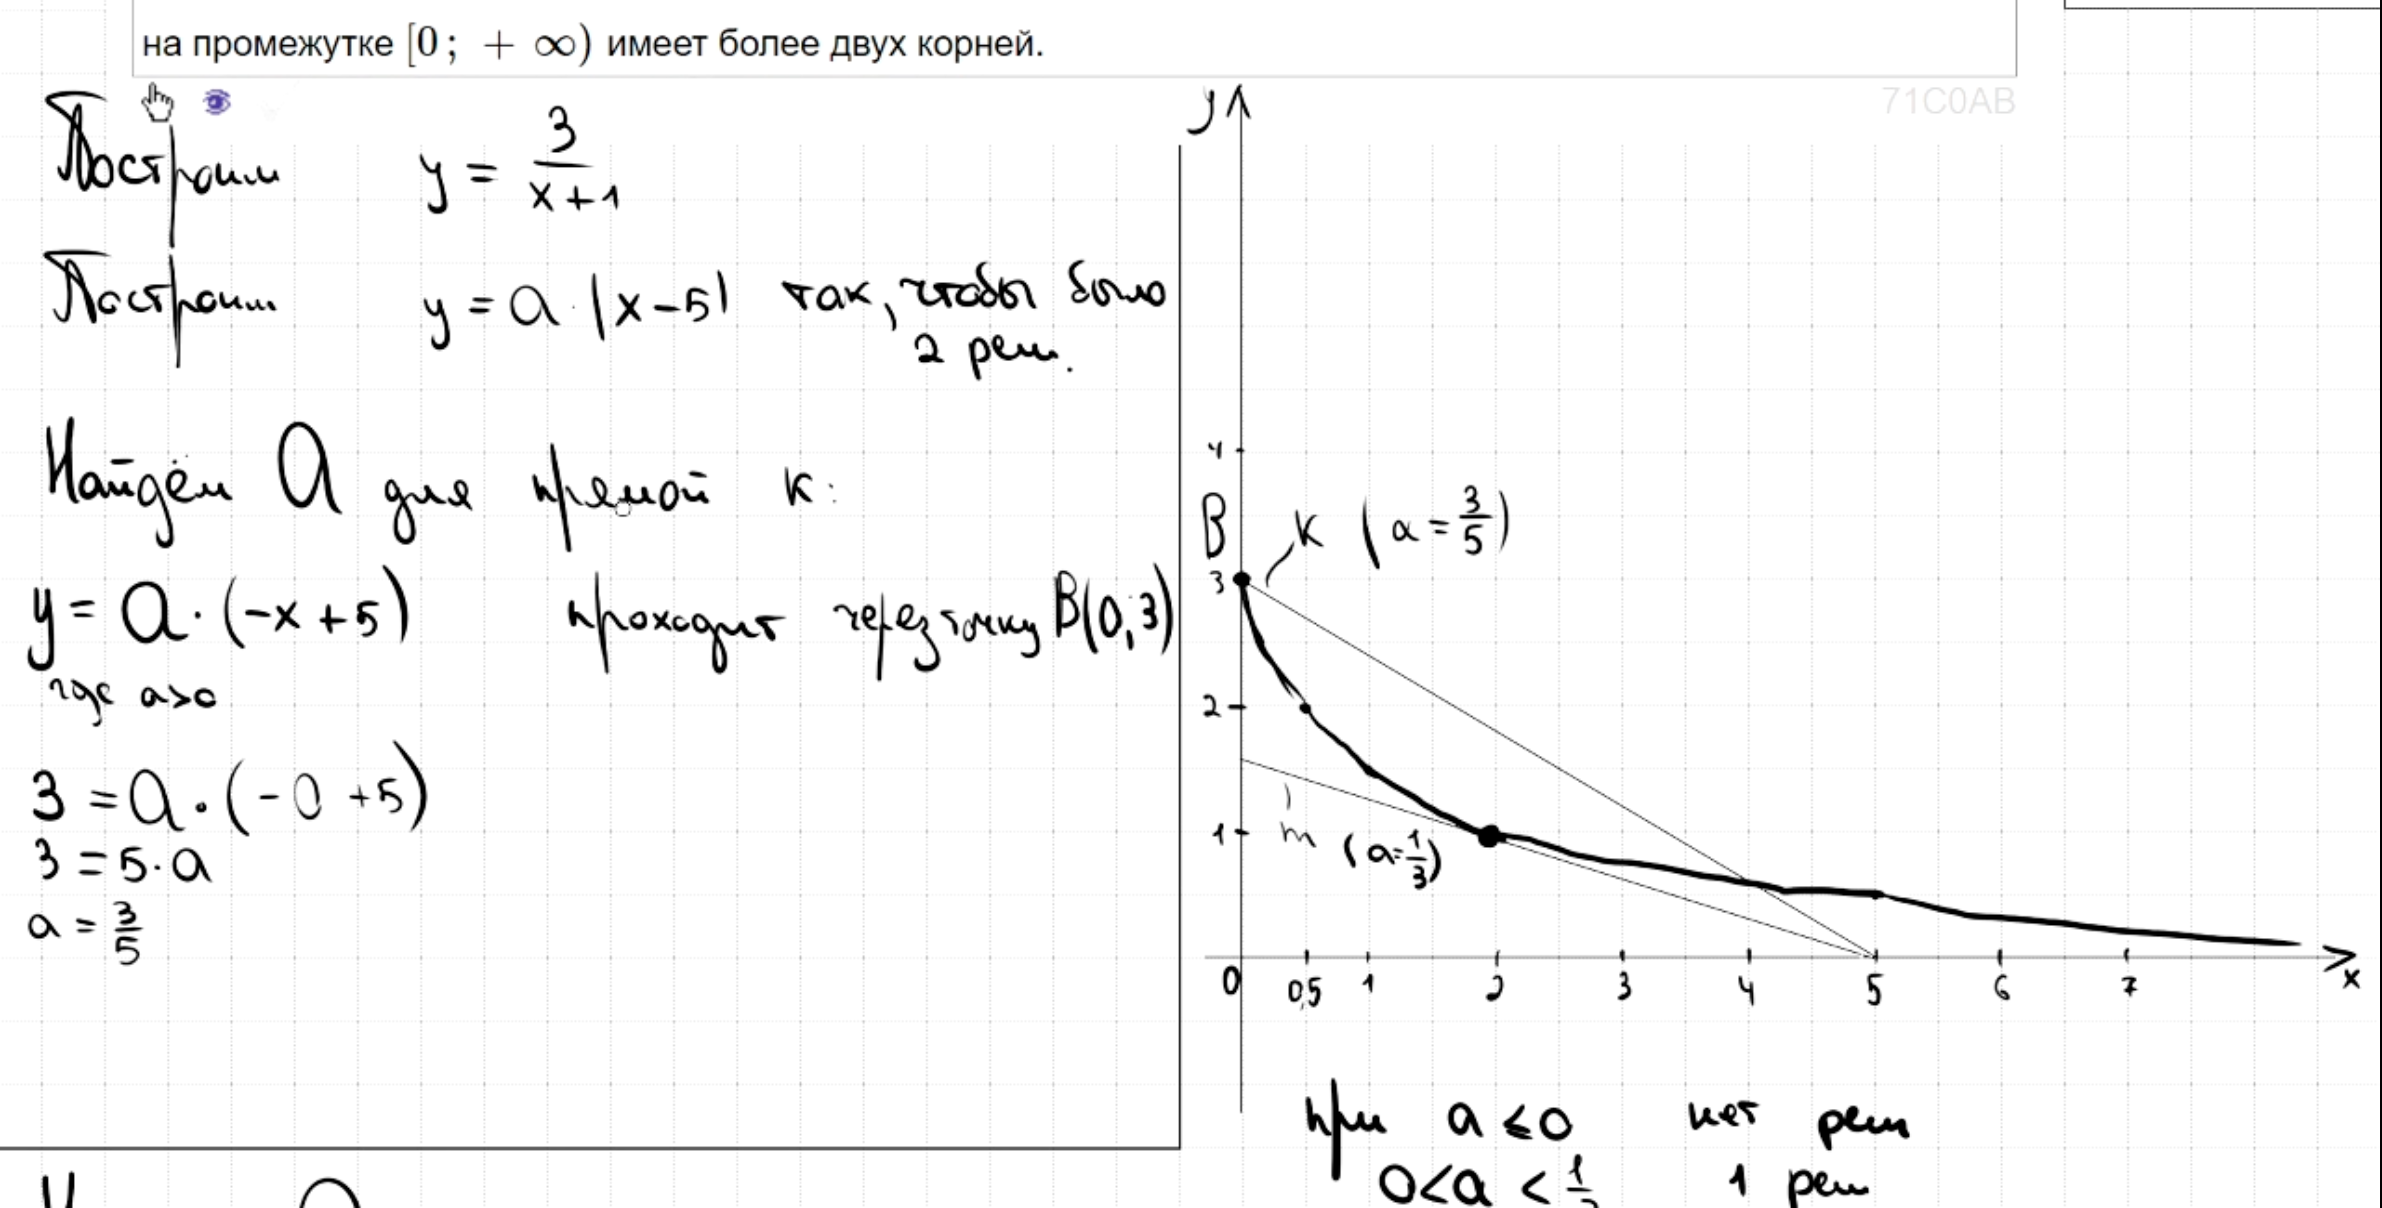 на промежутке [0; + ∞) имеет более двух корней.
71C0AB
Построим y = 3/(x+1)
Построим y = a·|x−5| так, чтобы было
2 реш.
Найдём a для прямой k:
y = a·(−x+5) проходит через точку B(0;3)
где a>0
3 = a·(−0+5)
3 = 5·a
a = 3/5
y
4
B
k (a = 3/5)
3
2
1
m (a=1/3)
0 0,5 1 2 3 4 5 6 7 x
при a ≤ 0 нет реш
0<a<1/3 1 реш